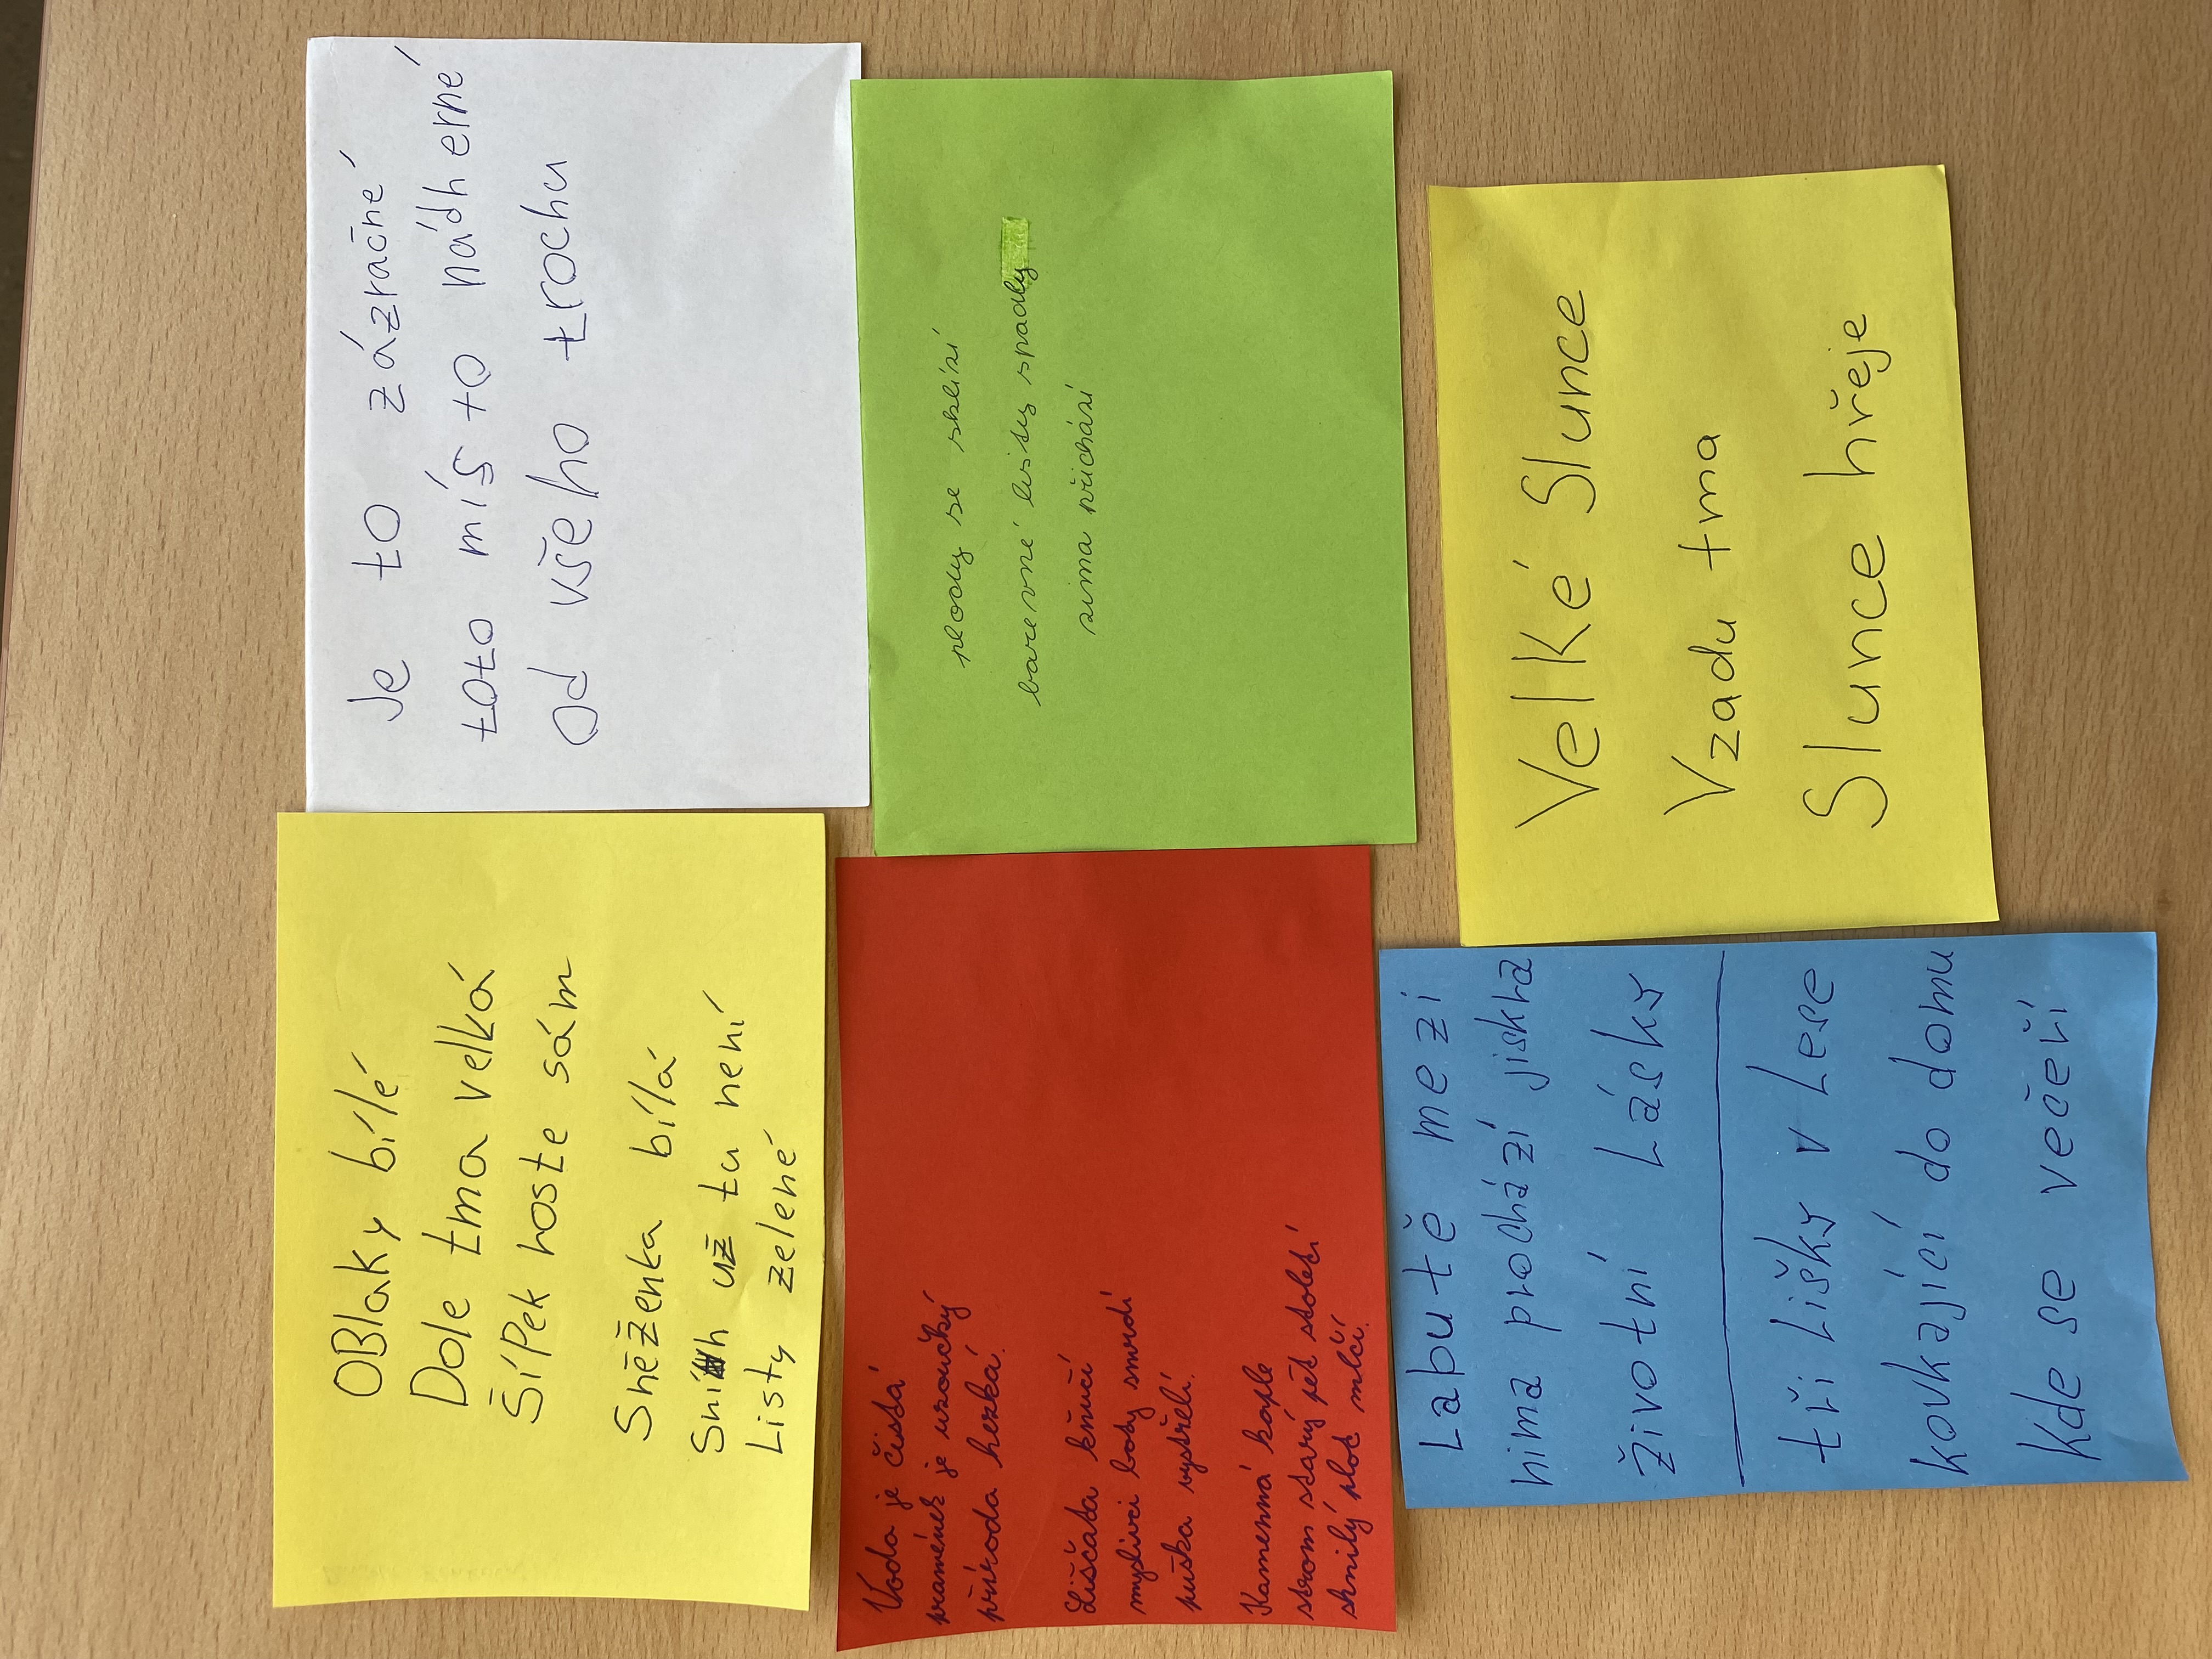 OBlaky bílé
Dole tma velká
Šípek roste sám
Sněženka bílá
Sníh už tu není
Listy zelené
Je to zázračné
toto místo nádherné
Od všeho trochu
Voda je čistá
pramének je uzoučký
příroda hezká.
Liščata kňučí
myslivci boty smrdí
puška vystřelí.
Kamenná kaple
strom starý pět století
shnilý plot mlčí.
plody se sklízí
barevné listy spadly
zima přichází
Labutě mezi
nima prochází jiskra
životní Lásky
tři Lišky v Lese
kovkající do domu
Kde se večeří
Velké Slunce
Vzadu tma
Slunce hřeje